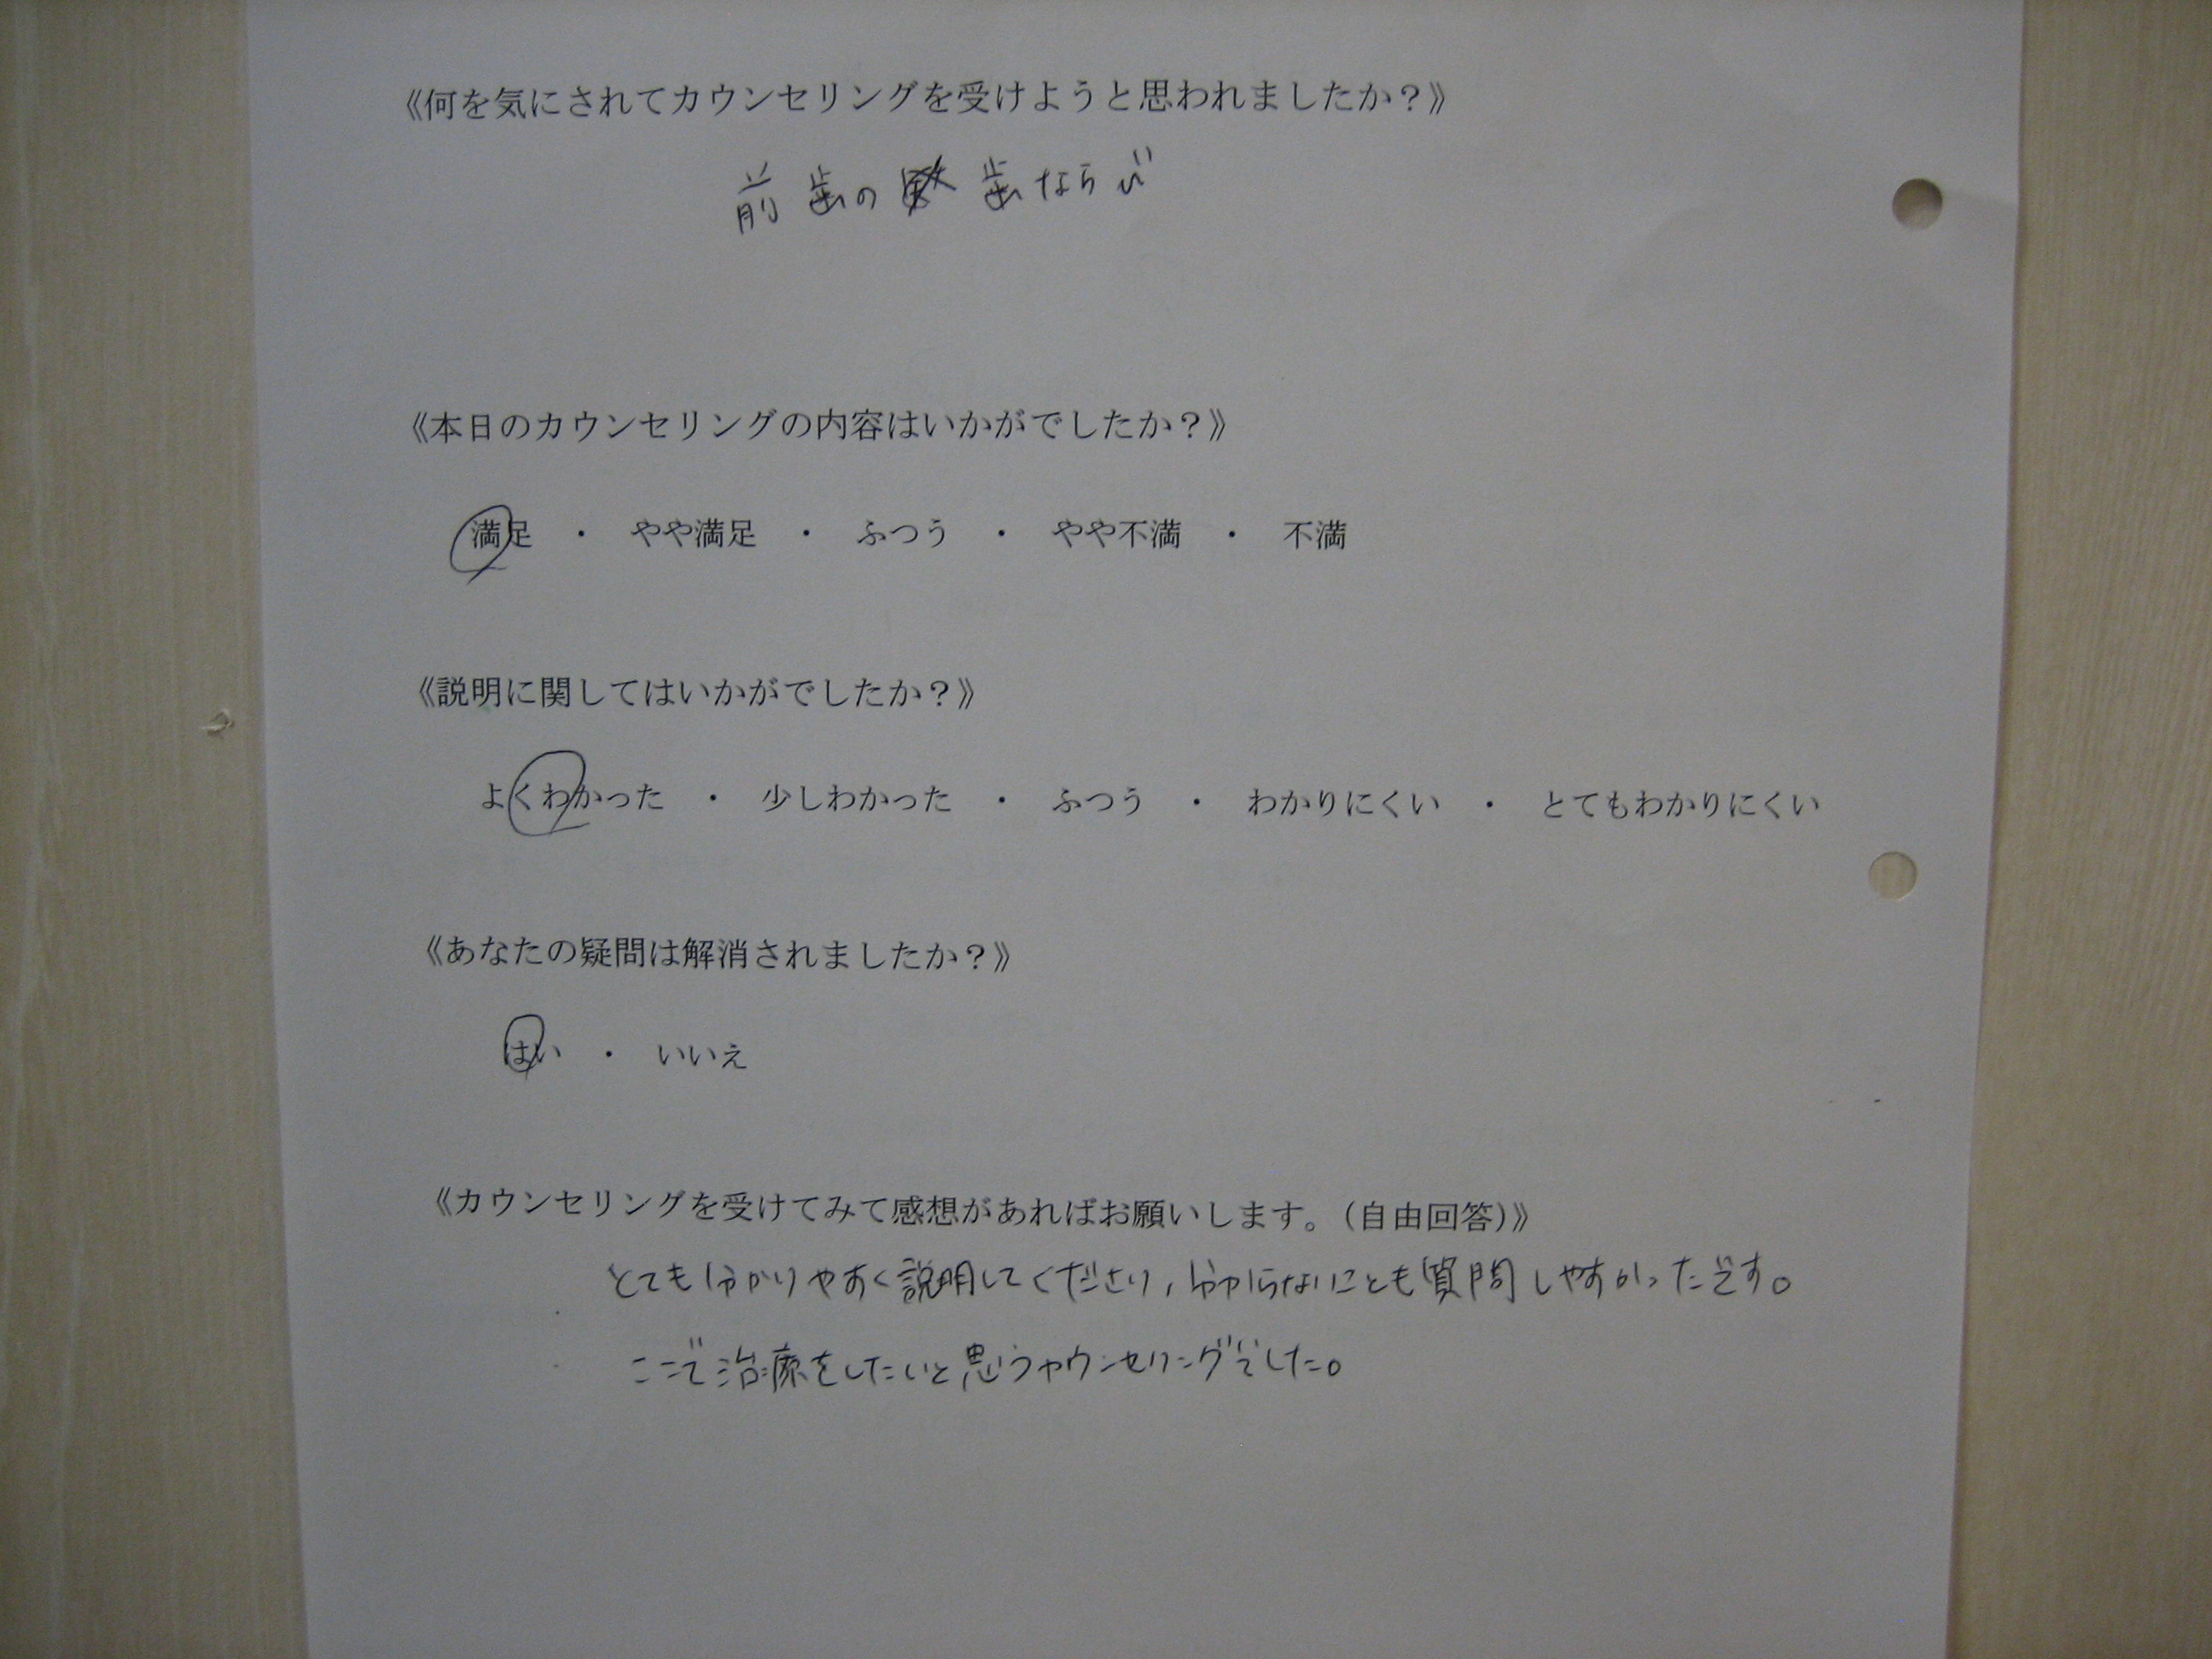 《何を気にされてカウンセリングを受けようと思われましたか？》
前歯の歯ならび
《本日のカウンセリングの内容はいかがでしたか？》
満足 ・ やや満足 ・ ふつう ・ やや不満 ・ 不満
《説明に関してはいかがでしたか？》
よくわかった ・ 少しわかった ・ ふつう ・ わかりにくい ・ とてもわかりにくい
《あなたの疑問は解消されましたか？》
はい ・ いいえ
《カウンセリングを受けてみて感想があればお願いします。（自由回答）》
とても分かりやすく説明してくださり、分からないことも質問しやすかったです。
ここで治療をしたいと思うカウンセリングでした。